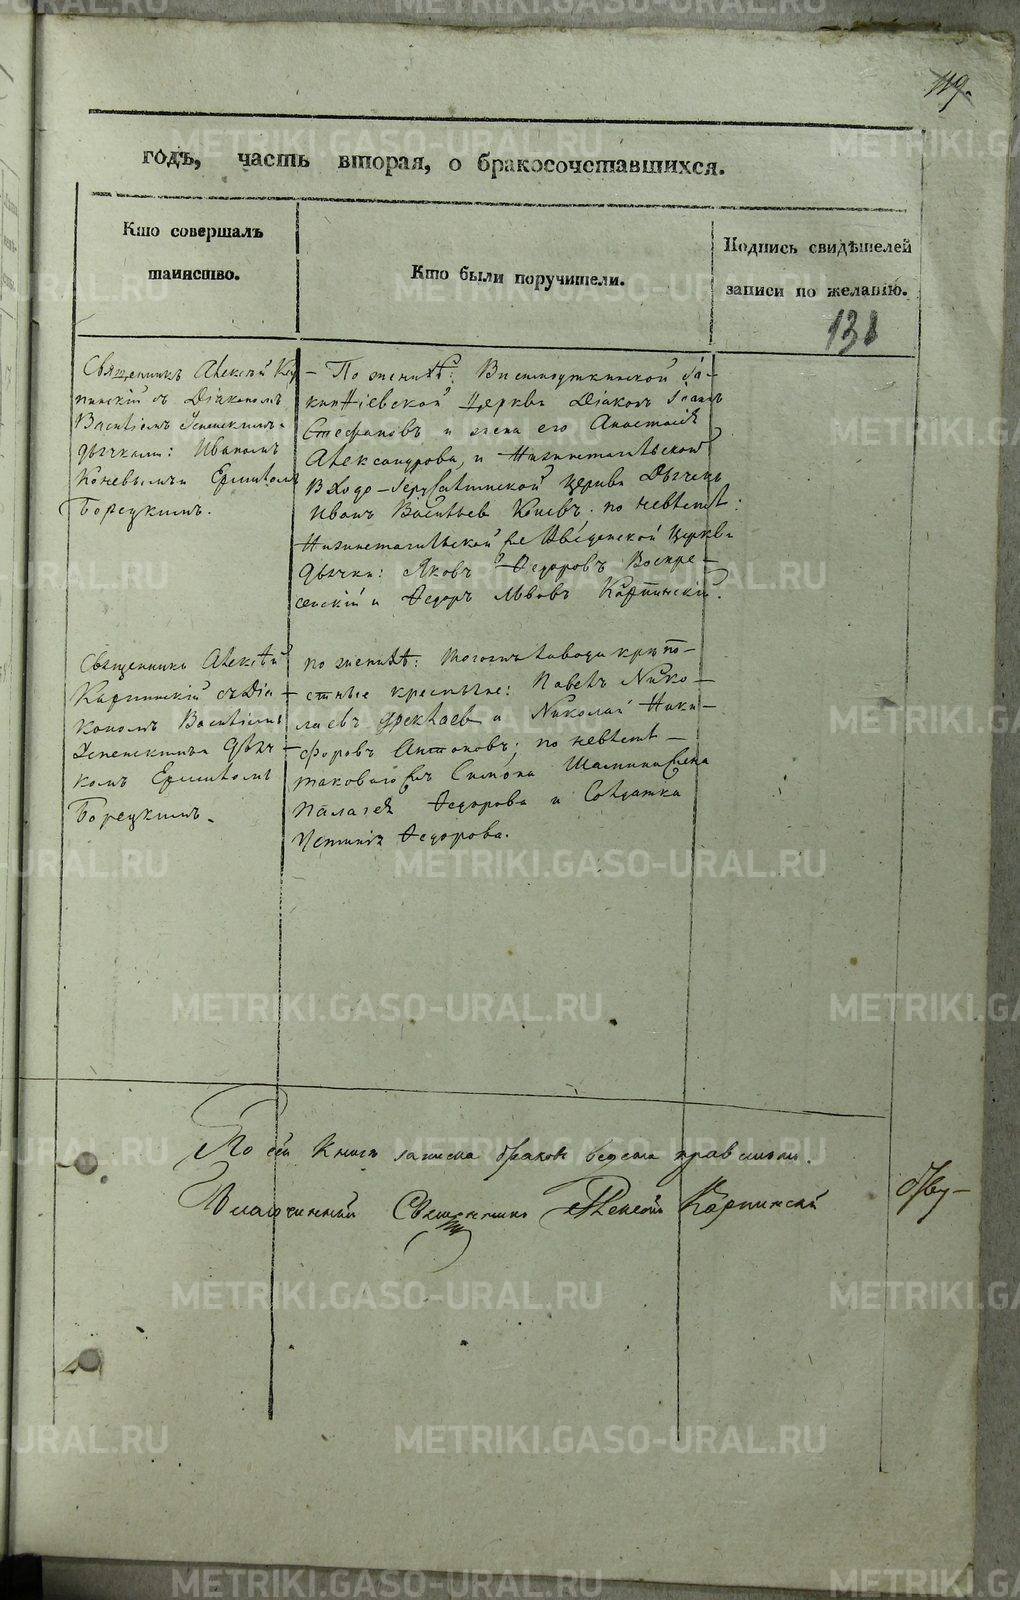 119.
годъ, часть вторая, о бракосочетавшихся.
Кто совершалъ
таинство.
Кто были поручители.
Подпись свидѣтелей
записи по желанію.
138
Священникъ Алексѣй Кар
пинскій съ Діакономъ
Василіомъ Успенскимъ и
дьячками: Иваномъ
Коневымъ и Ермиломъ
Борецкимъ.
– По женихѣ: Висимоуткинской
кинѳіевской Церкви Діаконъ Іоаннъ
Стефановъ и жена его Анастасія
Александрова, и Нижнетагильской
Входо-Іерусалимской Церкви Дьячекъ
Иванъ Васильевъ Коневъ. по невѣстѣ:
Нижнетагильской же Введенской Церкви
дьячки: Яковъ Ѳедоровъ Воскре-
сенскій и Ѳедоръ Львовъ Карпинскій.
Священникъ Алексѣй
Карпинскій съ Діа-
кономъ Василіомъ
Успенскимъ и дьяч-
комъ Ермиломъ
Борецкимъ.
по женихѣ: тогожъ завода крѣпо-
стные крестьяне: Павелъ Нико-
лаевъ и Николай Ники-
форовъ Антоновъ; по невѣстѣ –
таковагожъ Симона Шамина жена
Палагея Ѳедорова и Солдатка
Устинія Ѳедорова.
По сей книгѣ записка браковъ ведена правильно.
Благочинный Священникъ Алексѣй Карпинскій